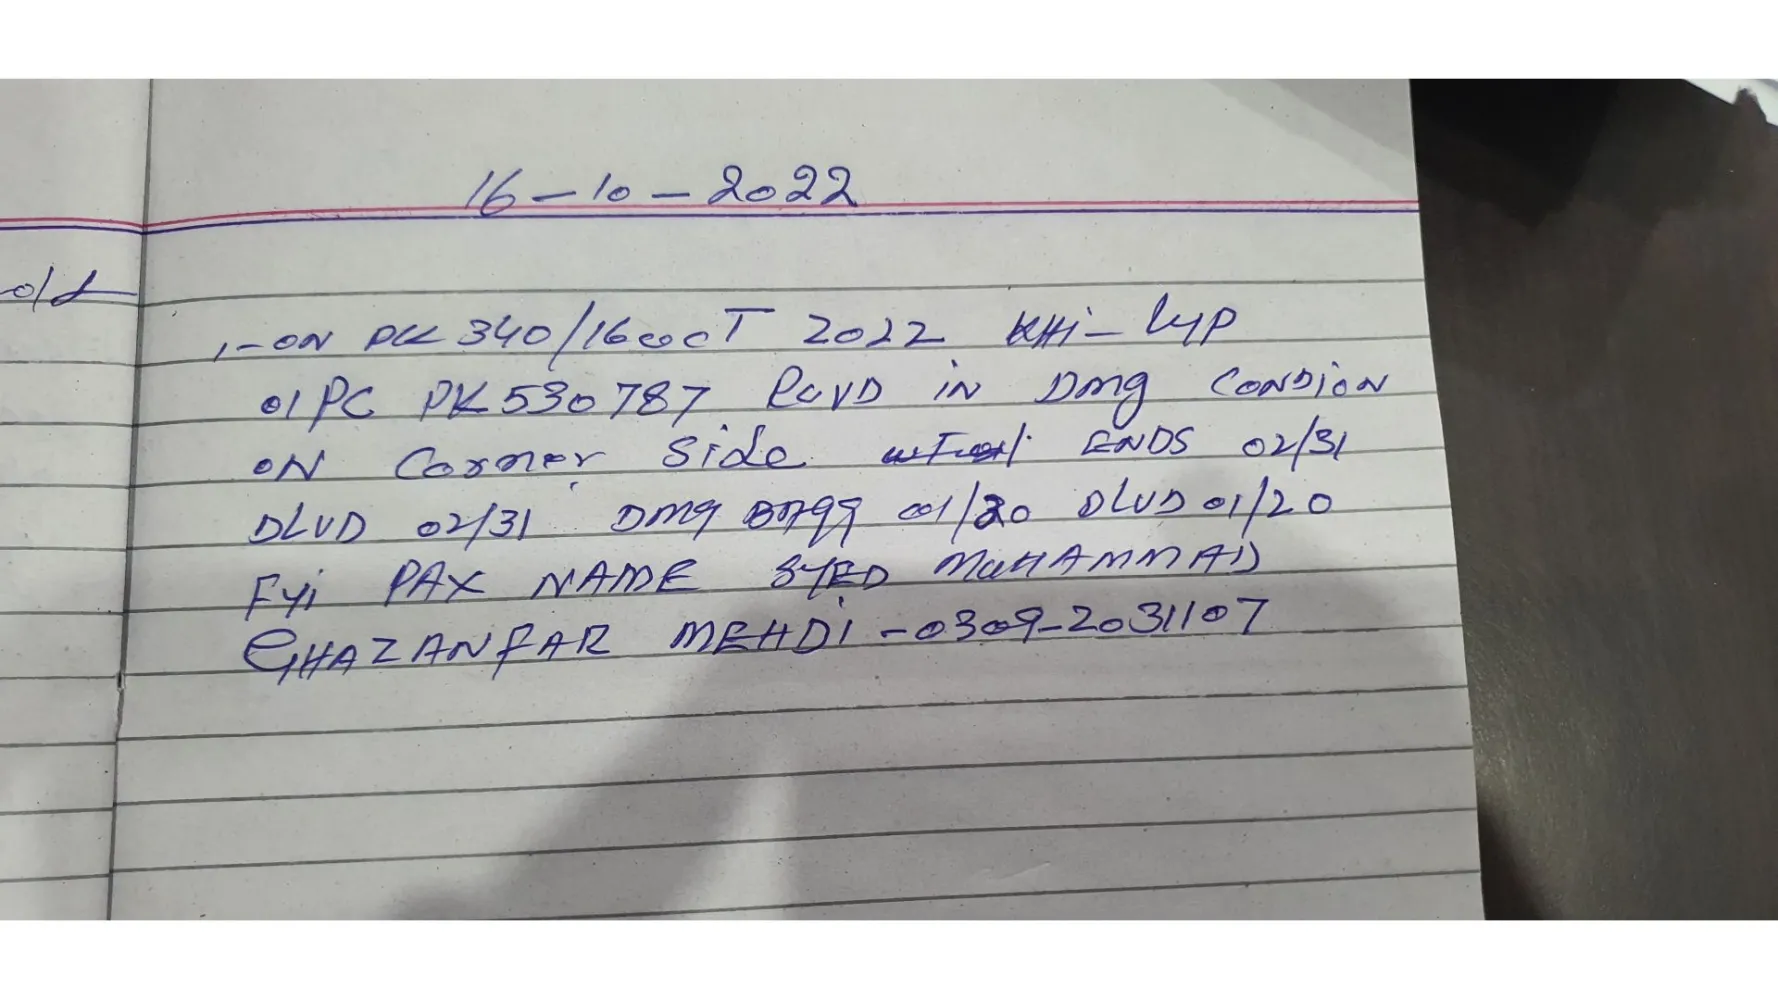 16-10-2022
old
1-ON PK 340/16 OCT 2022 KHI-LYP
01 PC PK530787 RCVD IN DMG CONDION
ON Corner Side ENDS 02/31
DLVD 02/31 DMG BAGG 01/20 DLVD 01/20
Fyi PAX NAME SYED MUHAMMAD
GHAZANFAR MEHDI -0309-2031107